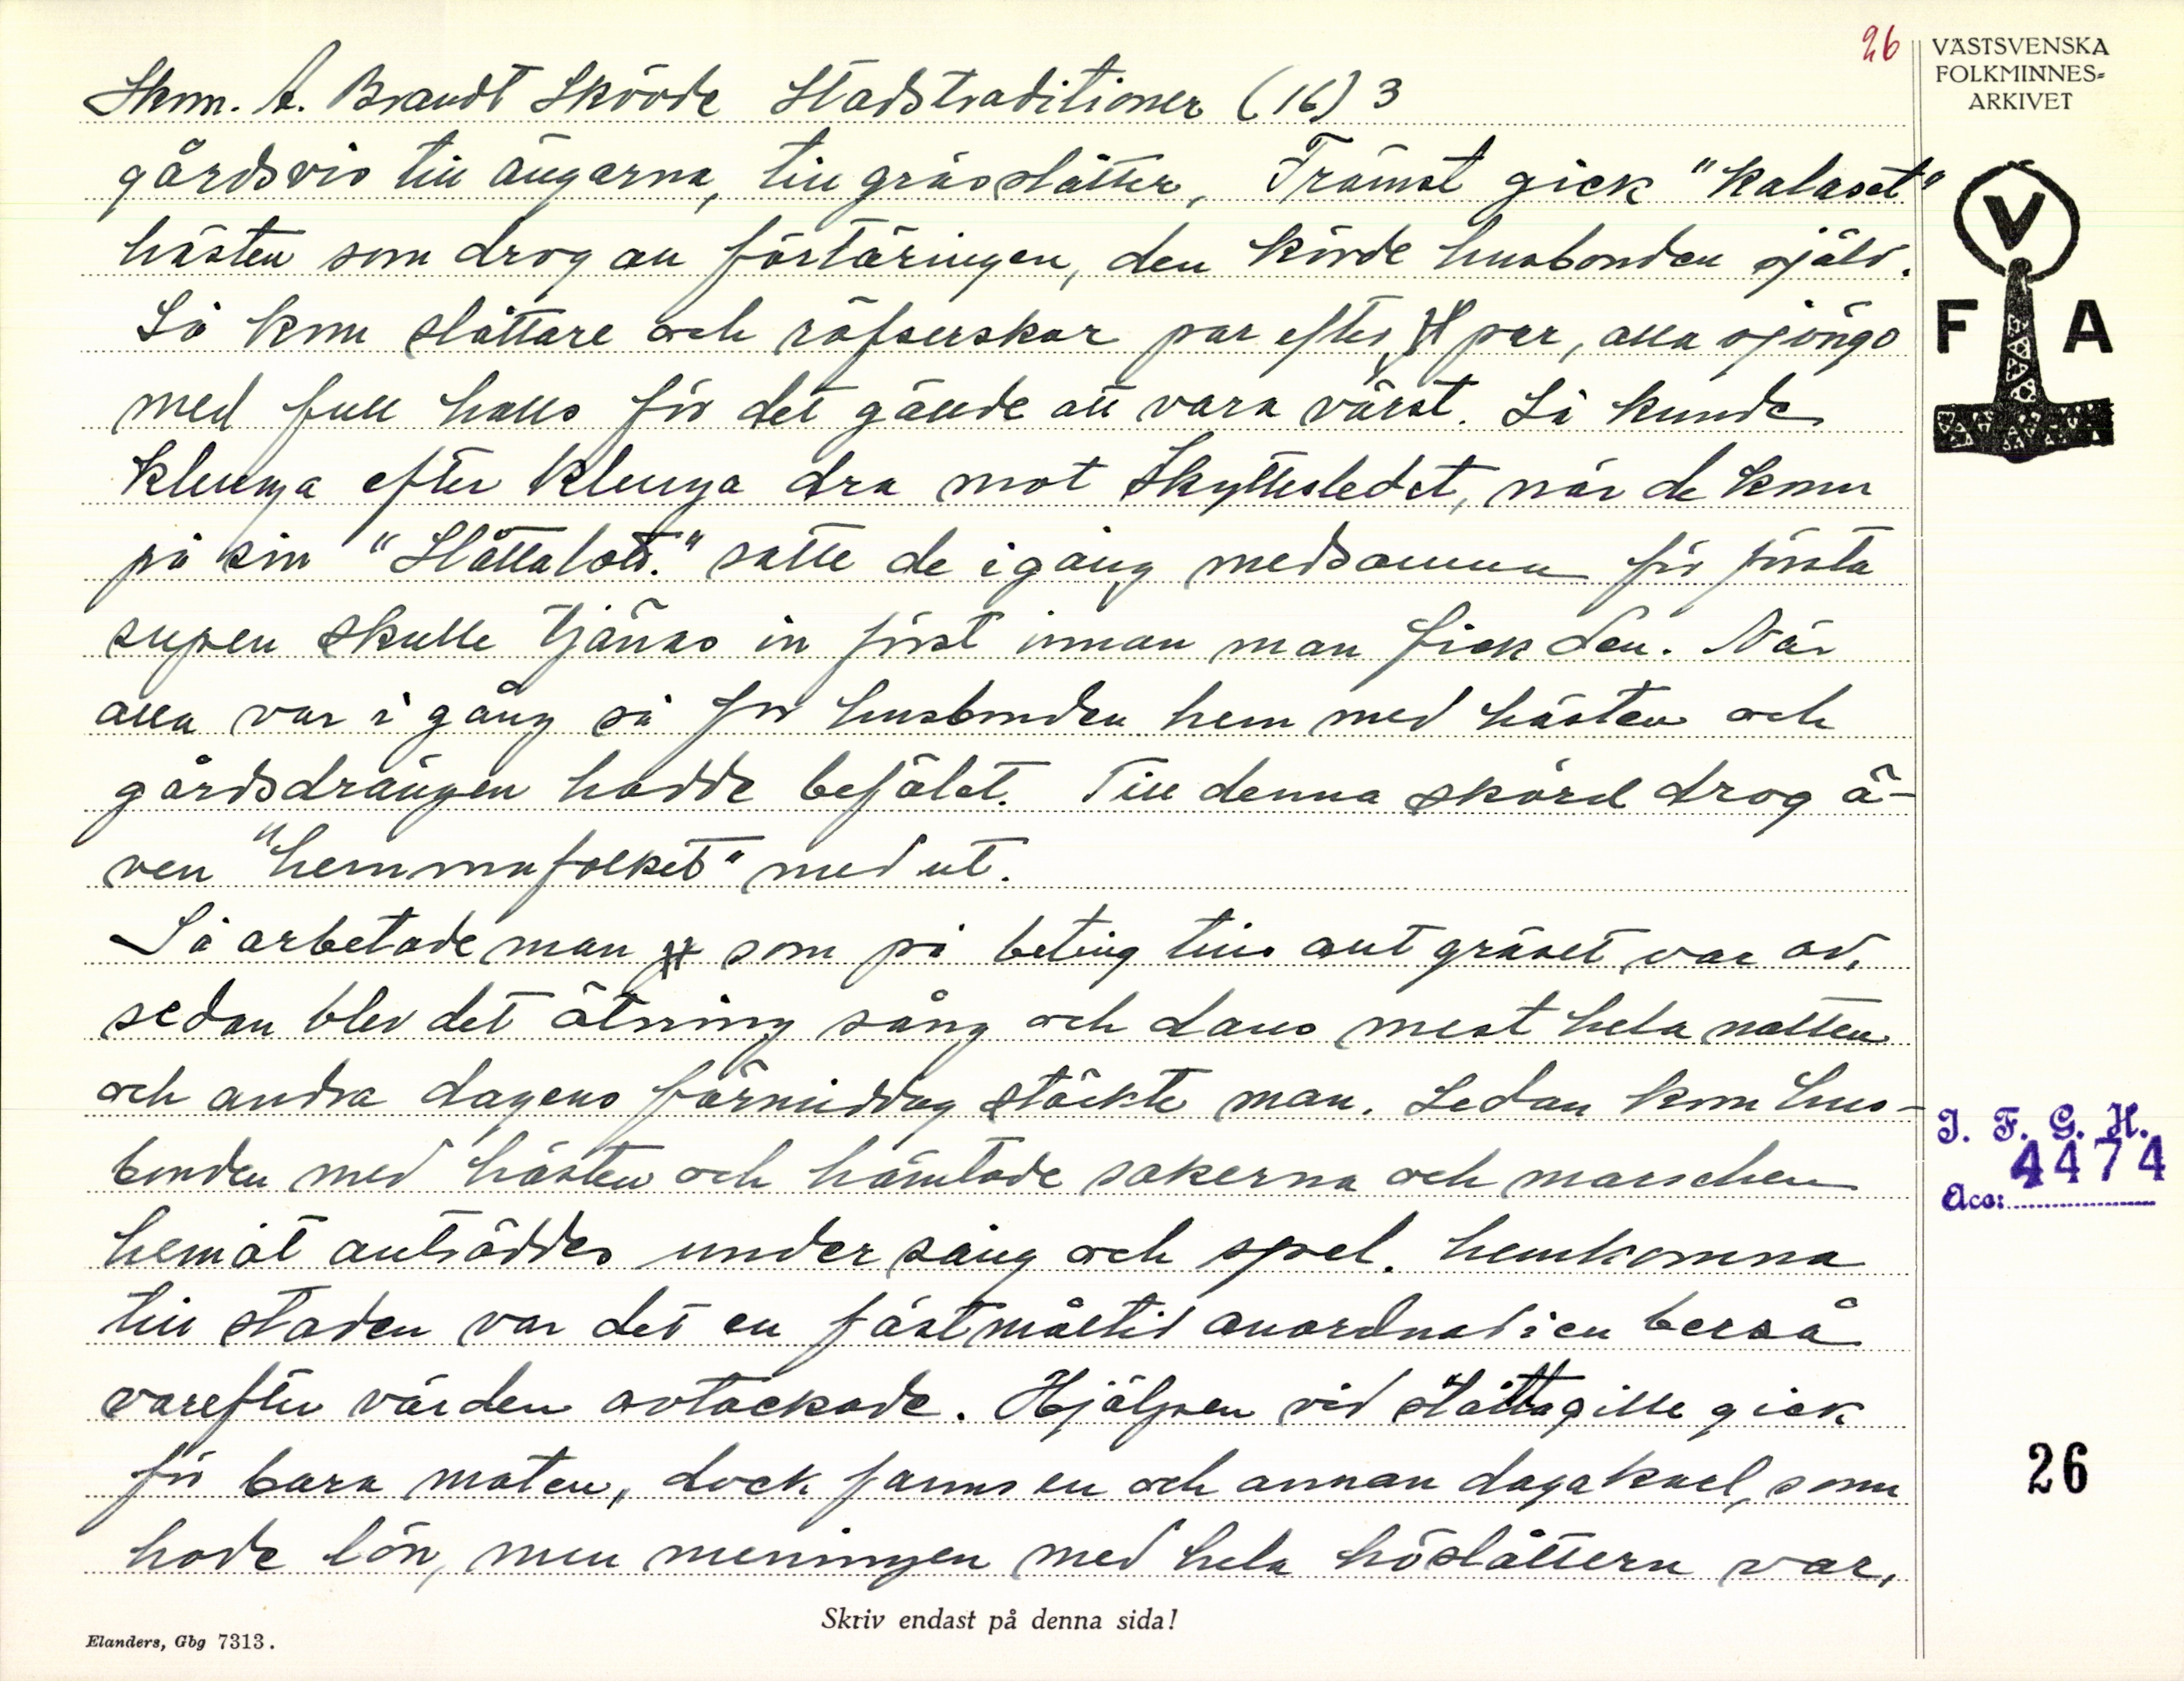 26
VÄSTSVENSKA
FOLKMINNES-
ARKIVET
V
F A
Skm. A. Brandt Skövde Stadstraditioner (16) 3
gårdsvis till ängarna, till grässlåtter, Främst gick "kalaset"
hästen som drog an förtäringen, den körde husbonden själv.
Så kom slåttare och räfserskor par efter par, alla sjöngo
med full hals för det gällde att vara värst. Så kunde
klunga efter klunga dra mot Skyttesledet, när de kom
på sin "Slåttalott." satte de igång medsamma för första
supen skulle tjänas in först innan man fick den. När
alla var i gång så for husbonden hem med hästen och
gårdsdrängen hadde befälet. Till denna skörd drog ä-
ven "hemmafolket" med ut.
Så arbetade man som på beting tills allt gräset var av,
sedan blev det ätning sång och dans mest hela natten
och andra dagens förmiddag stäckte man. Sedan kom hus-
bonden med hästen och hämtade sakerna och marschen
hemåt anträddes under sång och spel. hemkomna
till staden var det en fästmåltid anordnad i en berså
varefter värden avtackade. Hjälpen vid slåttagille gick
för bara maten, dock fanns en och annan dagakael, som
hade lön, men meningen med hela höslåttern var,
I. F. G. H.
4474
Acc:
26
Skriv endast på denna sida!
Elanders, Gbg 7313.